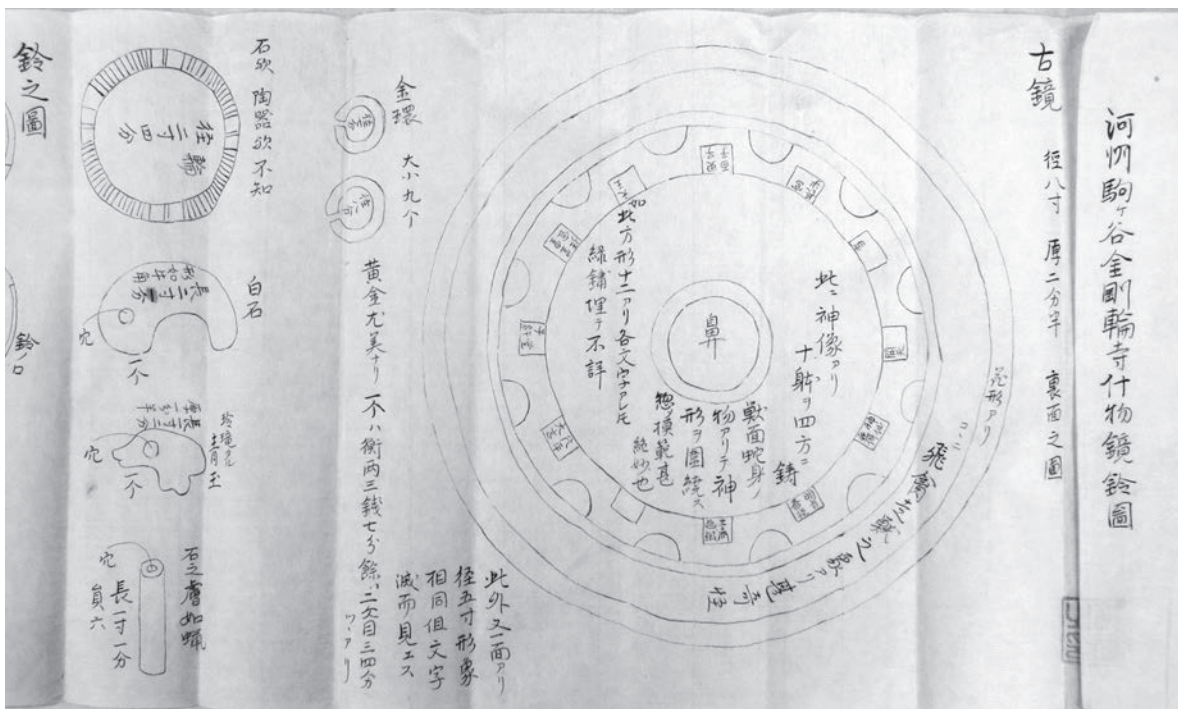 河州駒ヶ谷金剛輪寺什物鏡鈴圖
古鏡 徑八寸 厚二分半 裏面之圖
花形アリ
コヽニ
飛禽走獣之象アリ甚奇怪
鼻
此ニ神像アリ
十躰ヲ四方ニ
鋳
獣面蛇身ノ
物アリテ神
形ヲ圍繞ス
惣模範甚
絶妙也
如此方形十二アリ各文字アレトモ
緑錆埋テ不詳
此外又一面アリ
径五寸形象
相同但文字
滅而見エス
金環 大小九个
黄金尤美ナリ 一个ハ衡両三銭七分餘ハ二文目三四分
ワヽアリ
石欤陶器欤不知
輪
径二寸四分
白石
長二寸一分
穴
一个
玉
穴
一个
石之膚如蝋
穴
長一寸一分
員六
鈴之圖
鈴ノ口